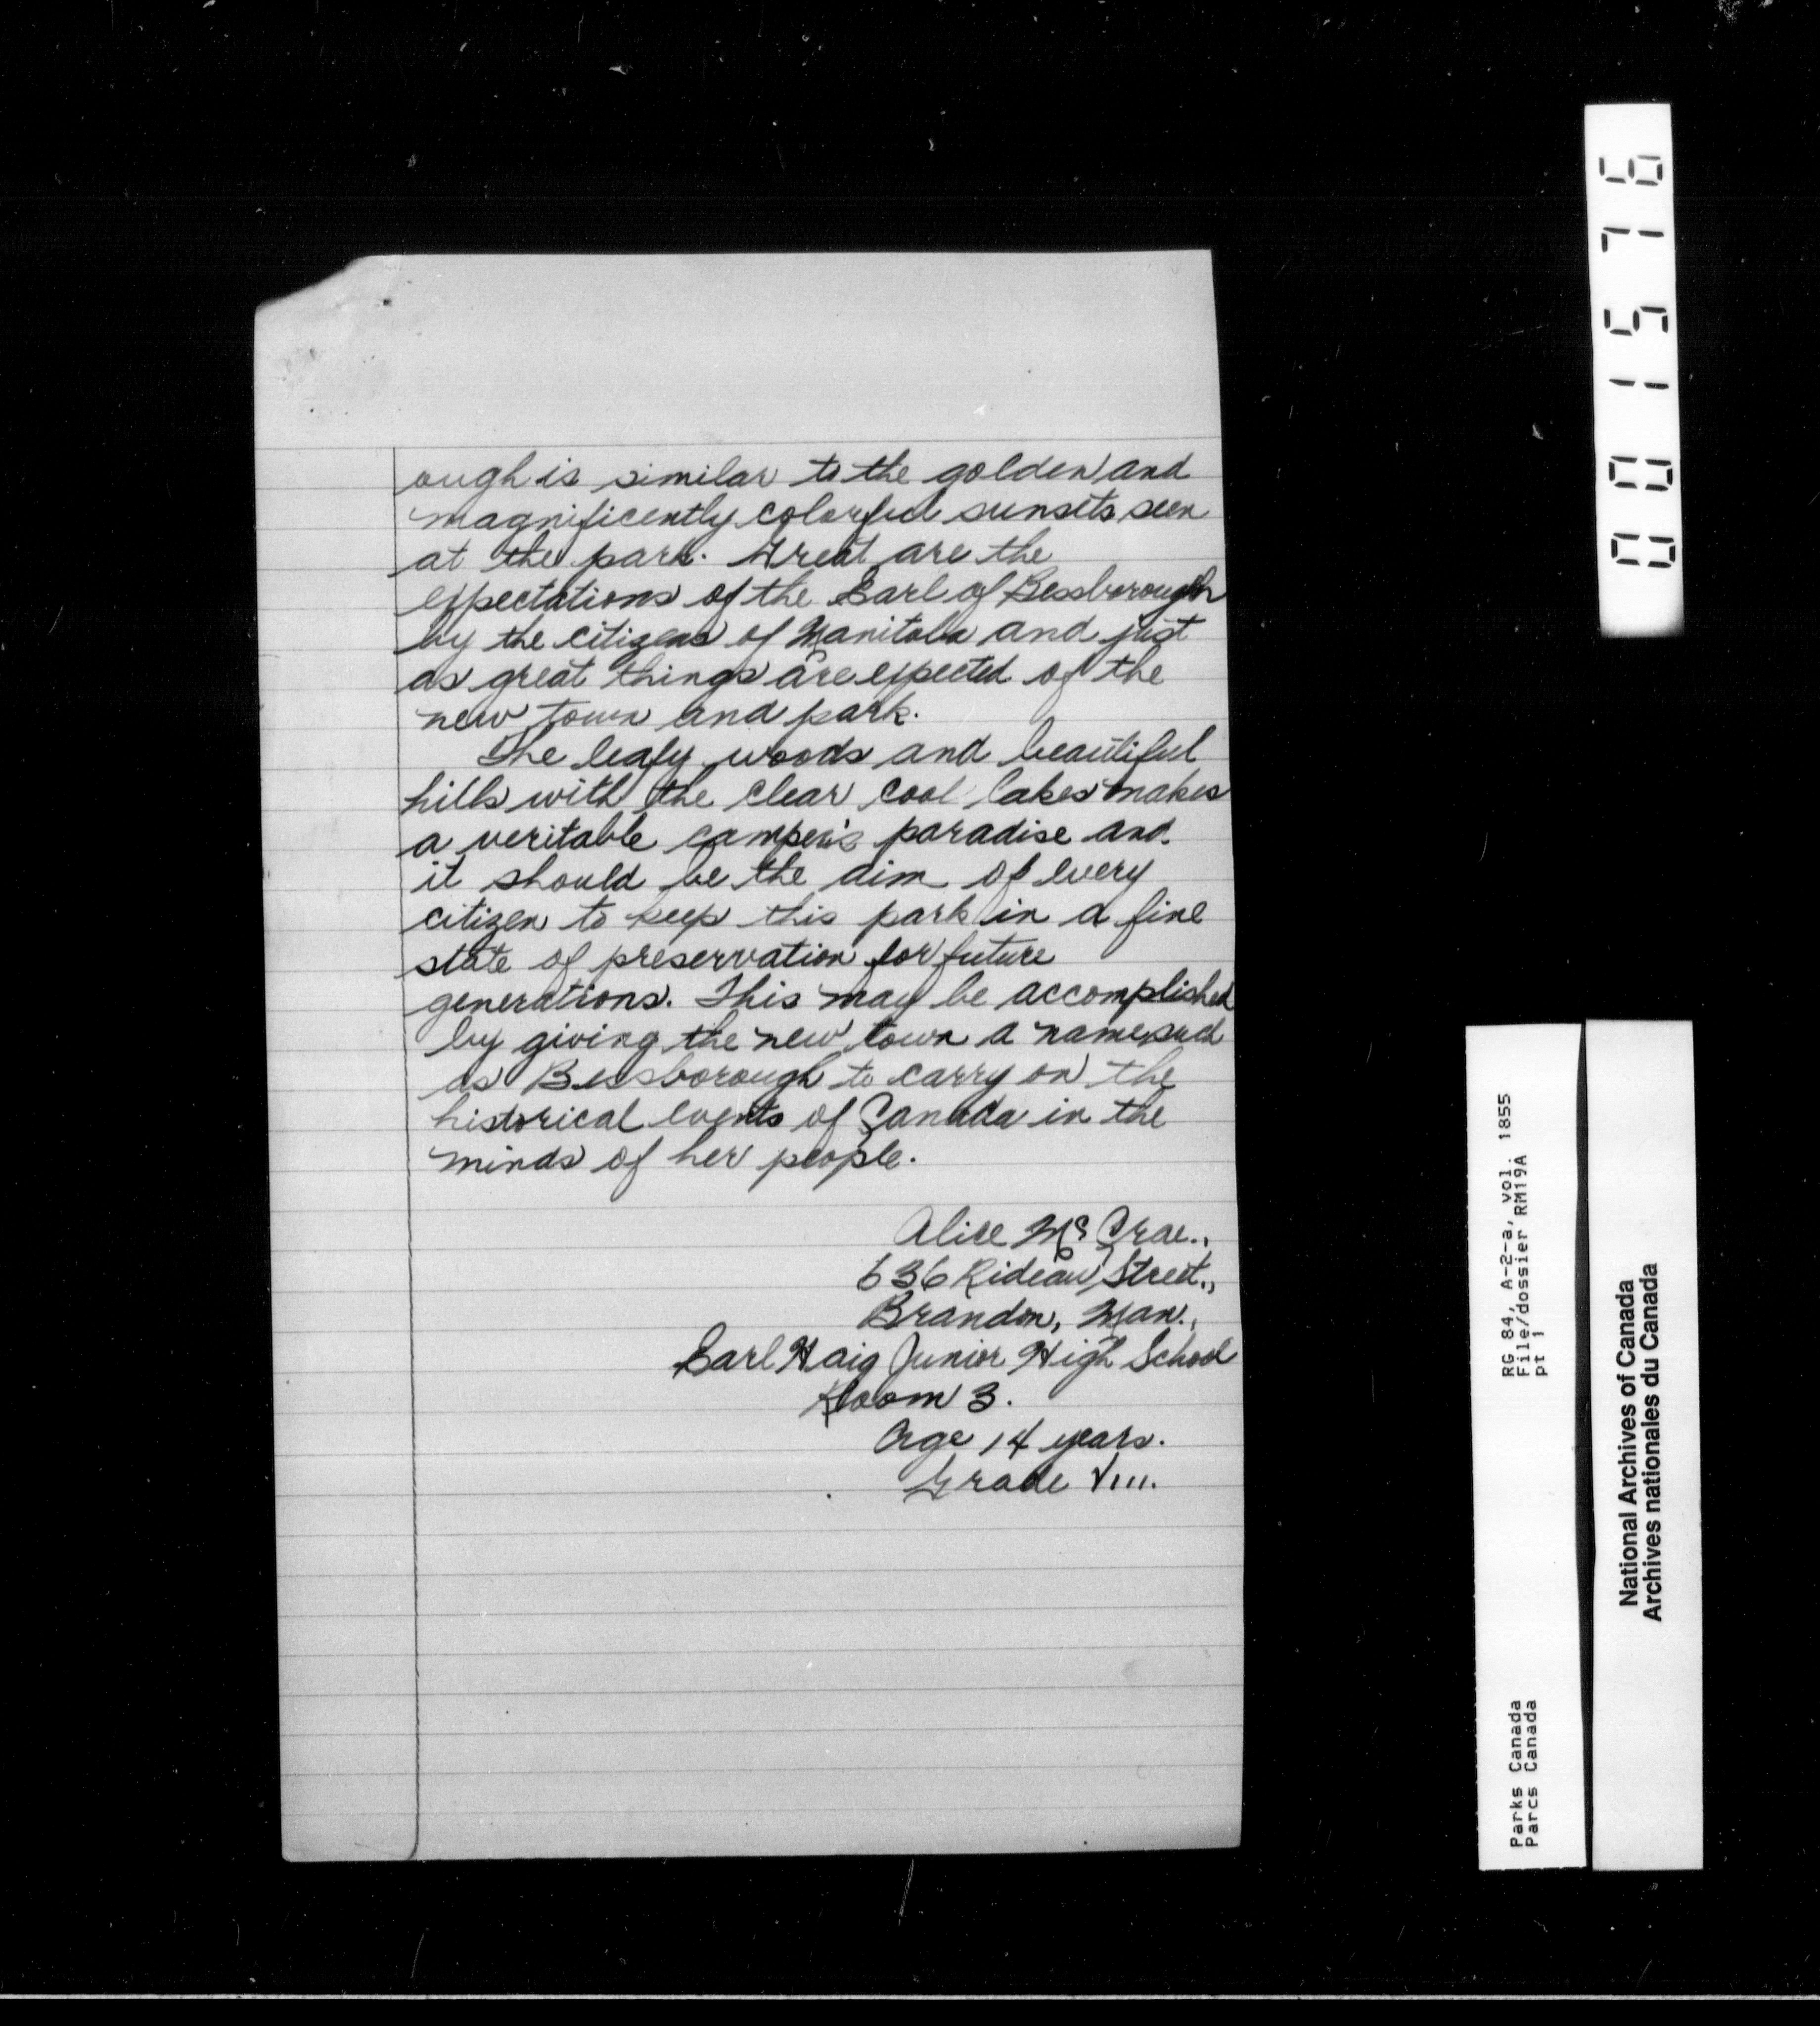 ough is similar to the golden and
magnificently colorful sunsets seen
at the park. Great are the
expectations of the Earl of Bessborough
by the citizens of Manitoba and just
as great things are expected of the
new town and park.
The leafy woods and beautiful
hills with the clear cool lakes makes
a veritable camper's paradise and
it should be the aim of every
citizen to keep this park in a fine
state of preservation for future
generations. This may be accomplished
by giving the new town a name such
as Bessborough to carry on the
historical events of Canada in the
minds of her people.
Alice Mc Crae.,
636 Rideau Street.,
Brandon, Man.,
Earl Haig Junior High School
Room 3.
Age 14 years.
Grade VIII.
001576
RG 84, A-2-a, vol. 1855
File/dossier RM19A
pt 1
Parks Canada
Parcs Canada
National Archives of Canada
Archives nationales du Canada